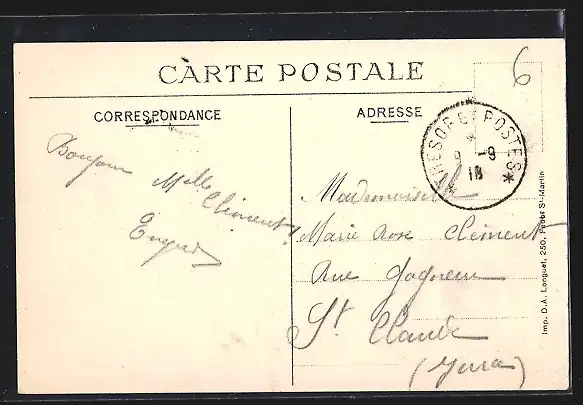 CARTE POSTALE
CORRESPONDANCE
ADRESSE
6
TRESOR ET POSTES
9 -9
18
Bonjour
Melle
Clément
Mademoiselle
Marie Rose Clément
Rue
St Claude
(Jura)
Imp. D.A. Longuet, 250, Faubg St-Martin